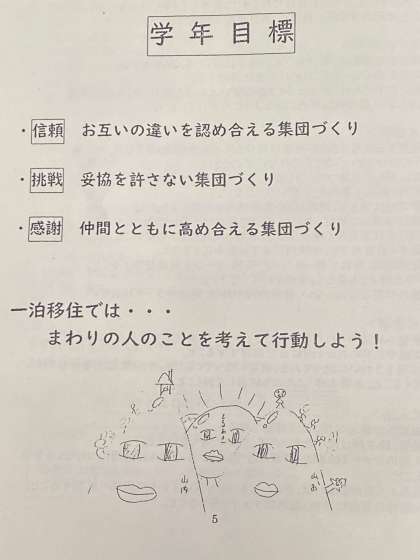 学年目標
・信頼 お互いの違いを認め合える集団づくり
・挑戦 妥協を許さない集団づくり
・感謝 仲間とともに高め合える集団づくり
一泊移住では・・・
まわりの人のことを考えて行動しよう！
5